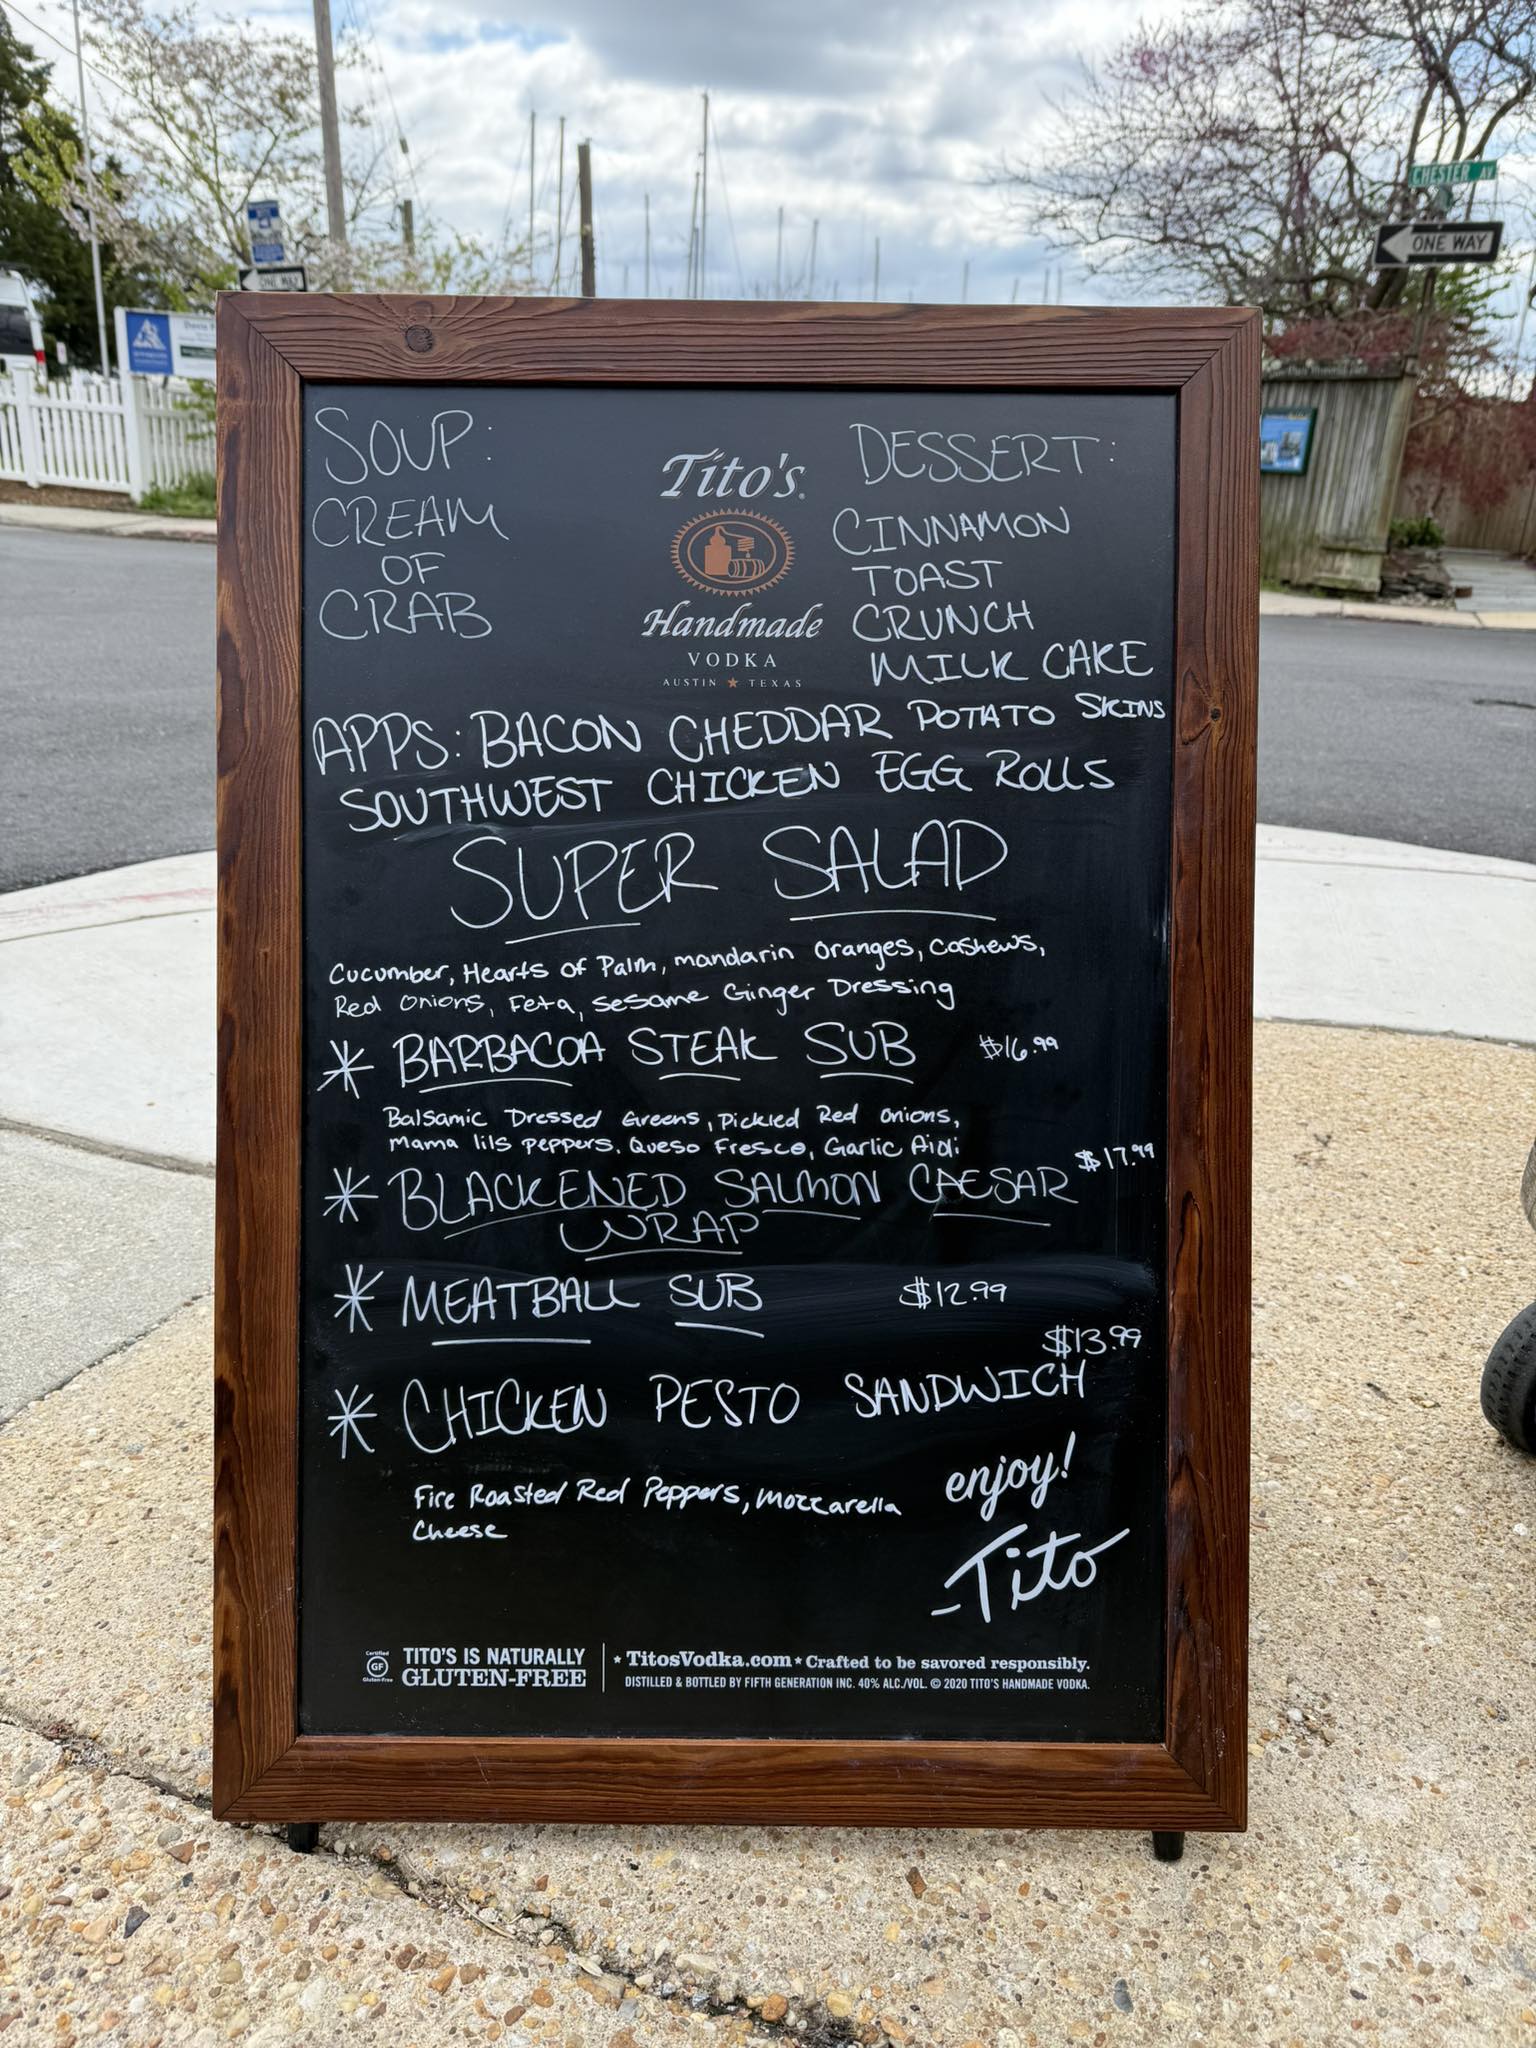 CHESTER AV
ONE WAY
ONE WAY
SOUP:
CREAM
OF
CRAB
Tito's
Handmade
VODKA
AUSTIN ★ TEXAS
DESSERT:
CINNAMON
TOAST
CRUNCH
MILK CAKE
APPS: BACON CHEDDAR POTATO SKINS
SOUTHWEST CHICKEN EGG ROLLS
SUPER SALAD
Cucumber, Hearts of Palm, mandarin oranges, cashews,
Red Onions, Feta, Sesame Ginger Dressing
* BARBACOA STEAK SUB $16.99
Balsamic Dressed Greens, Pickled Red Onions,
Mama lils peppers, Queso Fresco, Garlic Aioli
$17.99
* BLACKENED SALMON CAESAR
WRAP
* MEATBALL SUB $12.99
$13.99
* CHICKEN PESTO SANDWICH
Fire Roasted Red Peppers, mozzarella
Cheese
enjoy!
-Tito
Certified
GF
Gluten-Free
TITO'S IS NATURALLY
GLUTEN-FREE
* TitosVodka.com * Crafted to be savored responsibly.
DISTILLED & BOTTLED BY FIFTH GENERATION INC. 40% ALC./VOL. © 2020 TITO'S HANDMADE VODKA.